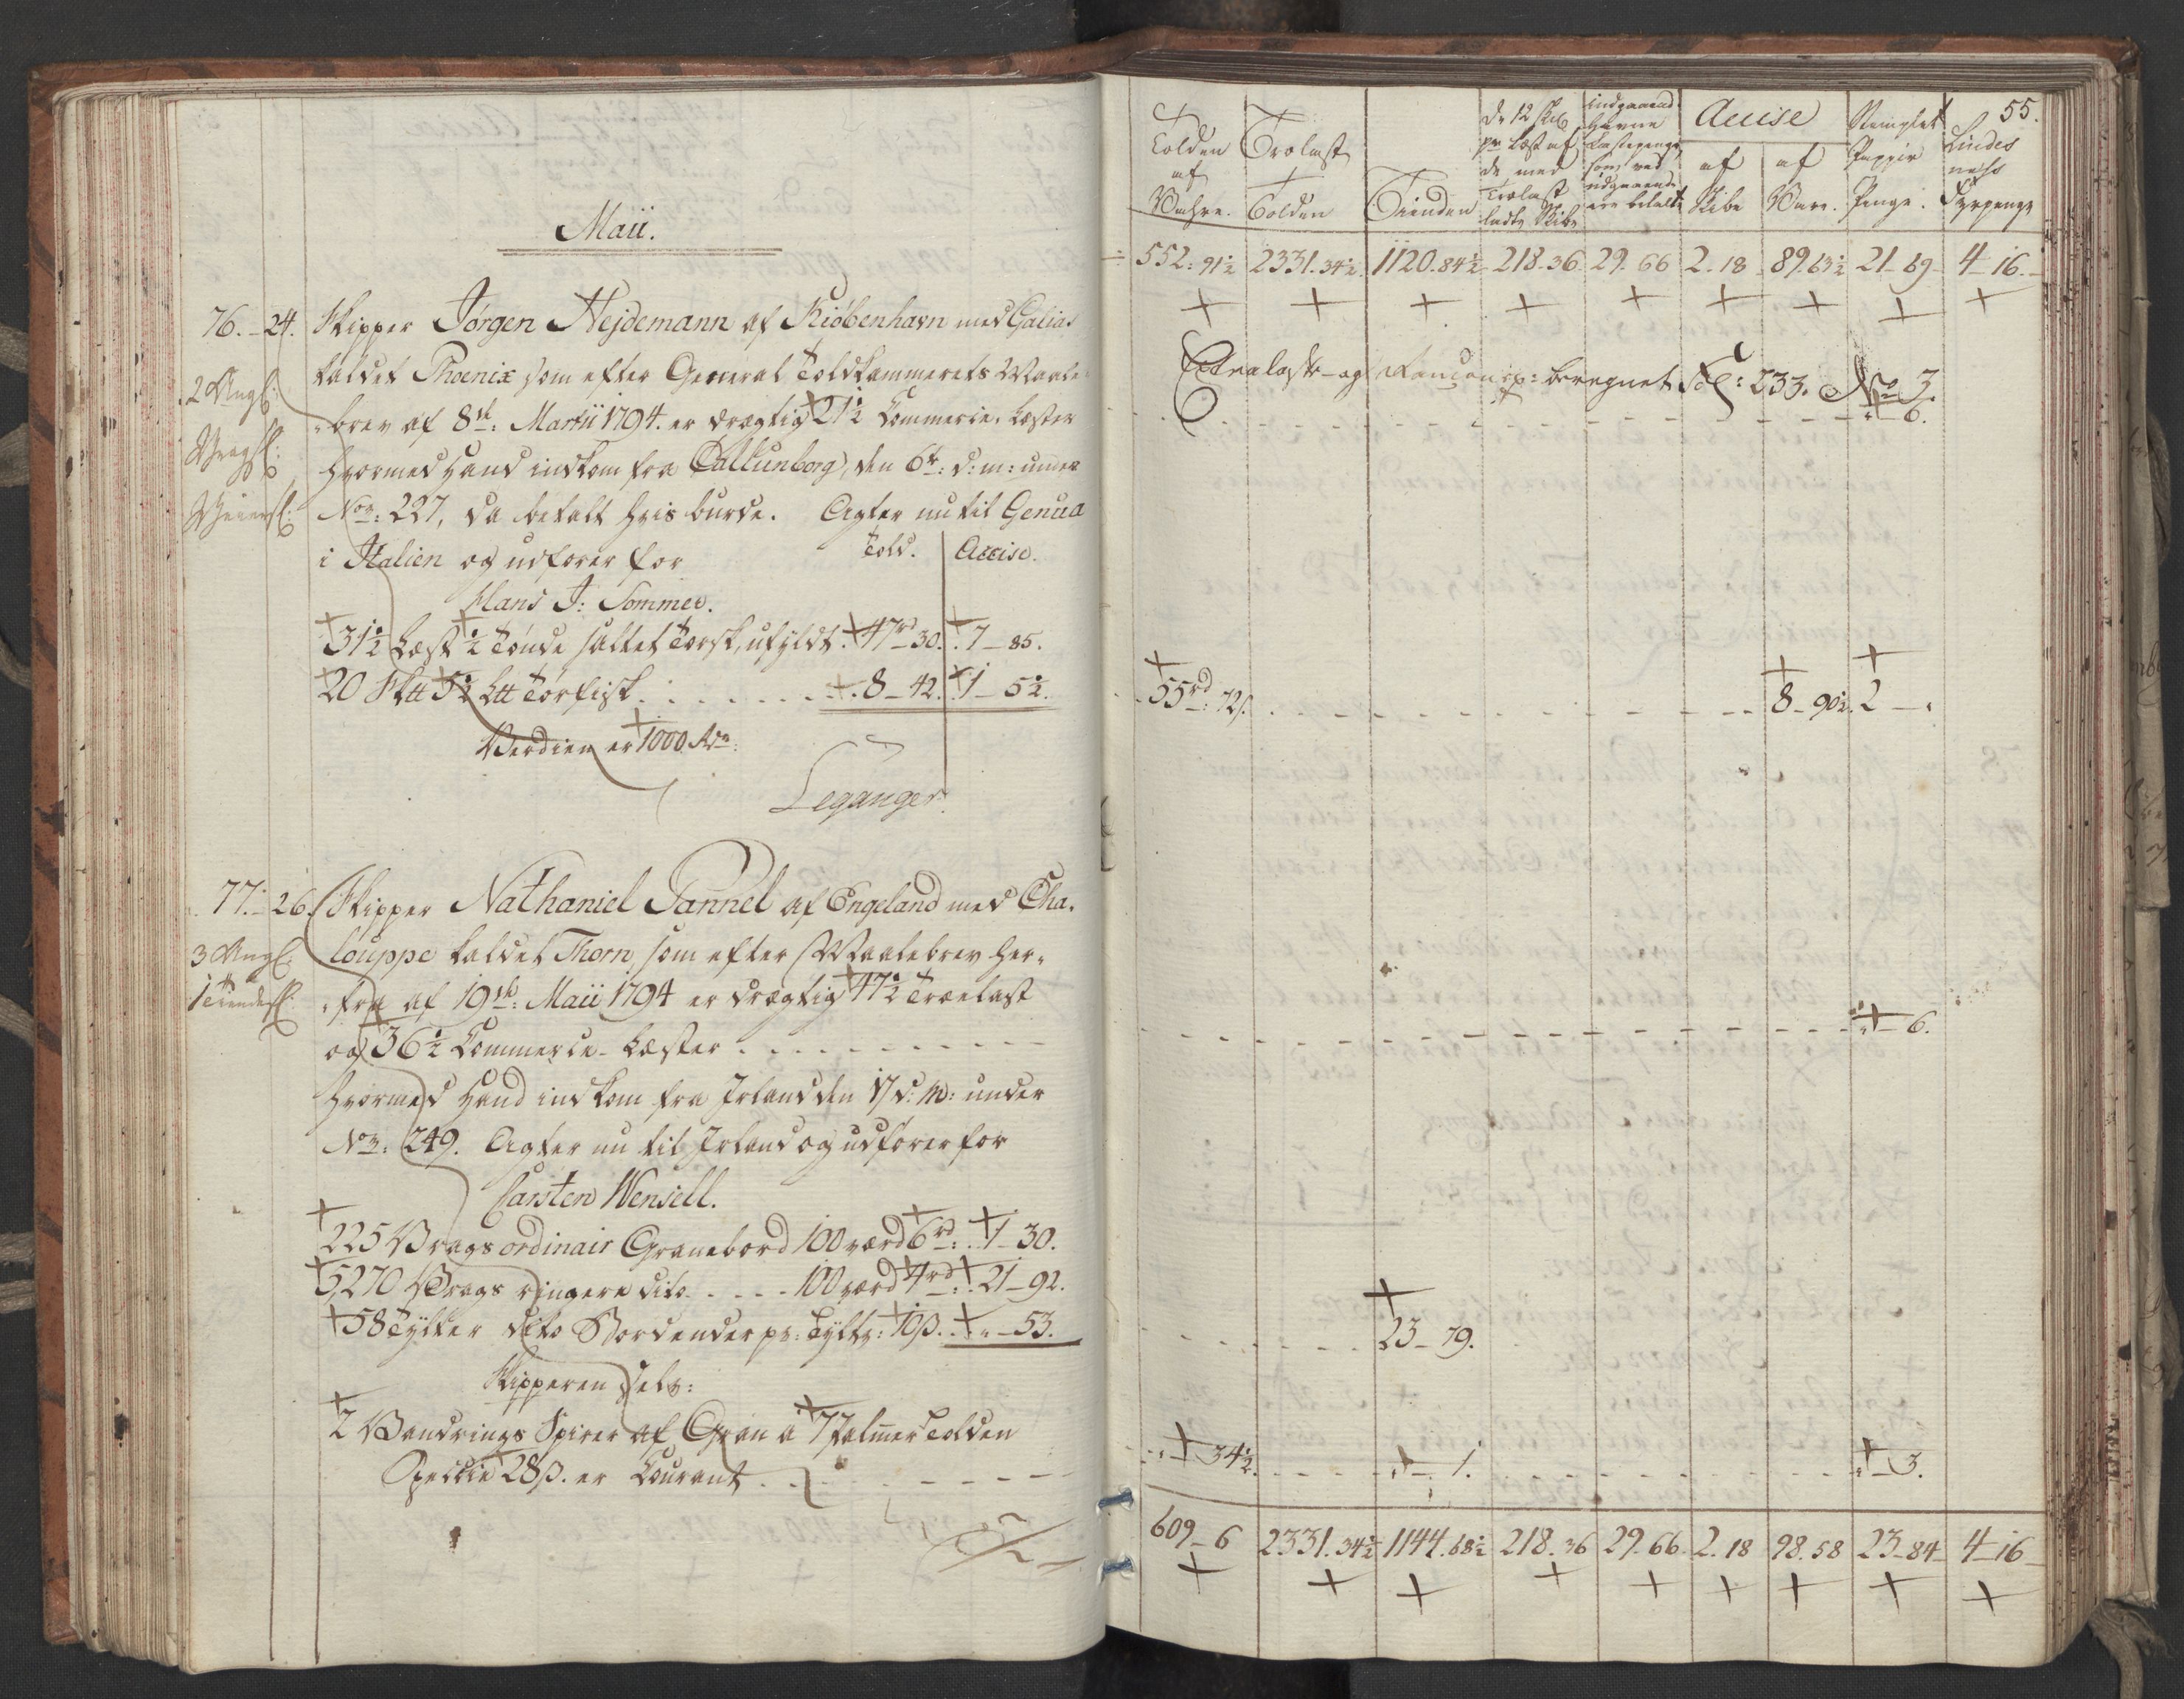 Maii.
76. - 24. Skipper Jørgen Hejdemann af Kiøbenhavn med Galias
kaldet Phoenix som efter General Toldkammerets Maale-
2 Angl:
brev af 8de: Martii 1794. er drægtig 21½ Commerce-Læster
Vragsl:
hvormed hand indkom fra Callunborg, den 6te: d: m: under
Veiersl:
No: 227, da betalt hvis burde. Agter nu til Genua
i Italien og udfører for Told. Accise.
Hans J: Sommer.
31½ Læst ½ Tønde saltet Torsk, ufyldt. 47rd 30. 7 - 85.
20 Sktt 5½ Ltt Tørfisk . . . . . . 8 - 42. 1 - 5½.
Verdien er 1000 Rdr:
Leganger.
77. - 26. Skipper Nathaniel Pannel af Engeland med Cha-
3 Angl:
louppe kaldet Thorn, som efter Maalebrev her-
1 Tiendesl:
fra af 19de: Maii 1794 er drægtig 47½ Trælast
og 36½ Commerce-Læster . . . . . . . .
hvormed hand indkom fra Irland den 17 d: m: under
No: 249. Agter nu til Irland og udfører for
Carsten Wensell.
225 Vrags ordinair Granebord 100 værd 6rd: 1 - 30.
5,270 Vrags ringere dito . . . . 100 værd 4rd: 21 - 92.
58 Tylter dito Bordender pr: Tylt: 10β. " - 53.
Skipperen selv:
2 Bandrings Spirer af Gran a 7 Palmer Tolden
Specie 28β. er Courant . . . . . . .
55.
Tolden af Vahre. Trolast Tolden Tienden de 12 Skl: pr Læst af de med Trælast ladte Skibe indgaaende Havne Lastepenge som ved udgaaende ere betalte Accise af Skibe af Vare. Stemplet Papiir Penge. Lindesness Fyrpenge
552: 91½ 2331. 34½ 1120. 84½ 218. 36 29. 66 2. 18 89. 63½ 21 - 69 4 - 16.
Extralast- og beregnet Fol: 233. No 3.
" - 6.
55rd: 72β. 8 - 90½. 2 - "
" - 6.
23 - 79.
" - 34½. " - 1. " - 3.
609 - 6 2331. 34½ 1144. 68½ 218. 36 29. 66 2. 18 98. 58 23 - 84 4 - 16